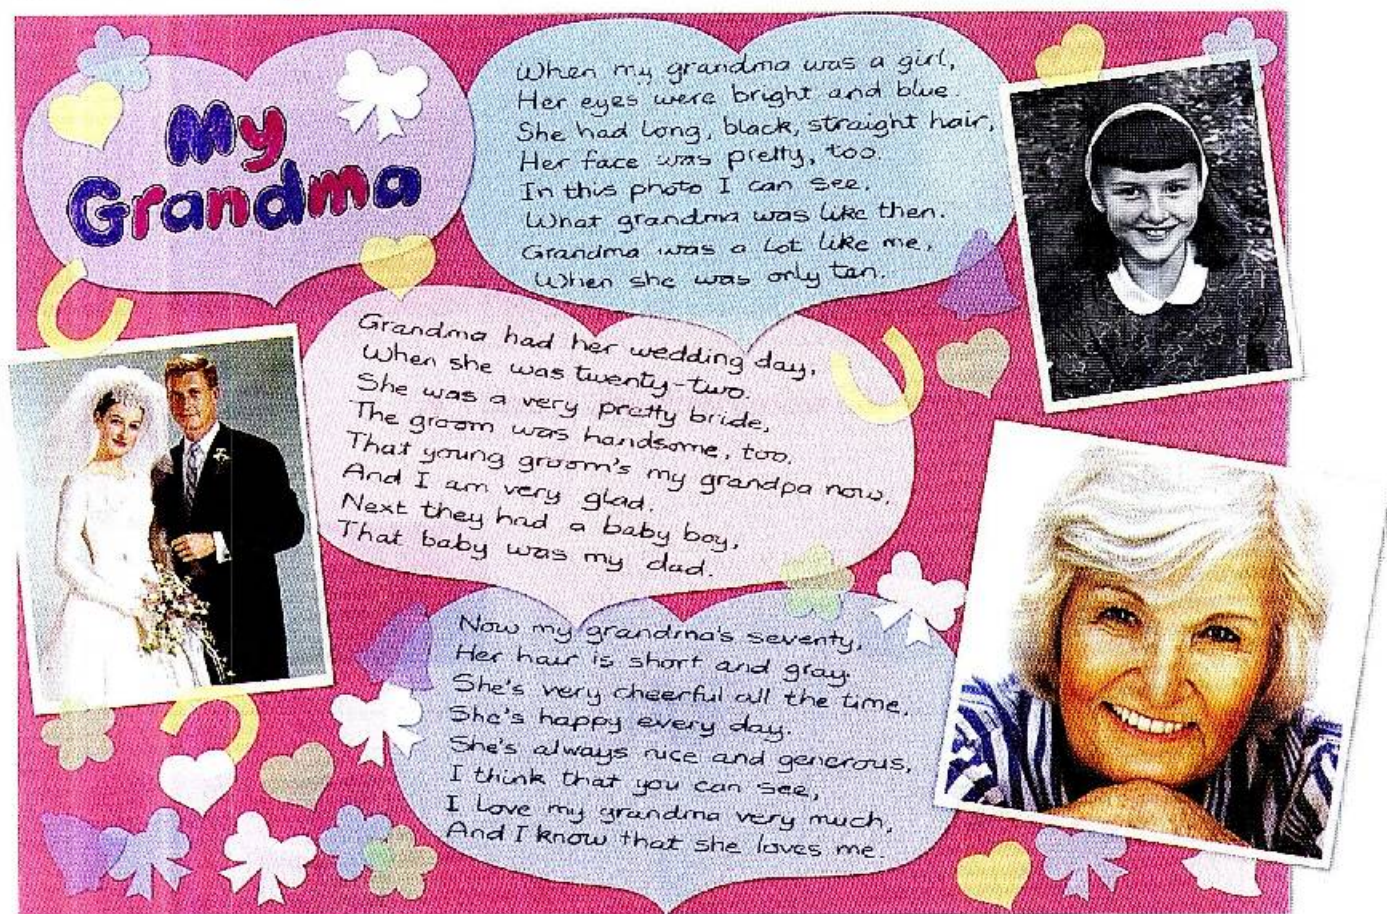 My
Grandma
When my grandma was a girl,
Her eyes were bright and blue.
She had long, black, straight hair,
Her face was pretty, too.
In this photo I can see,
What grandma was like then.
Grandma was a lot like me,
When she was only ten.
Grandma had her wedding day,
When she was twenty-two.
She was a very pretty bride,
The groom was handsome, too.
That young groom's my grandpa now,
And I am very glad.
Next they had a baby boy,
That baby was my dad.
Now my grandma's seventy,
Her hair is short and gray.
She's very cheerful all the time,
She's happy every day.
She's always nice and generous,
I think that you can see,
I love my grandma very much,
And I know that she loves me.